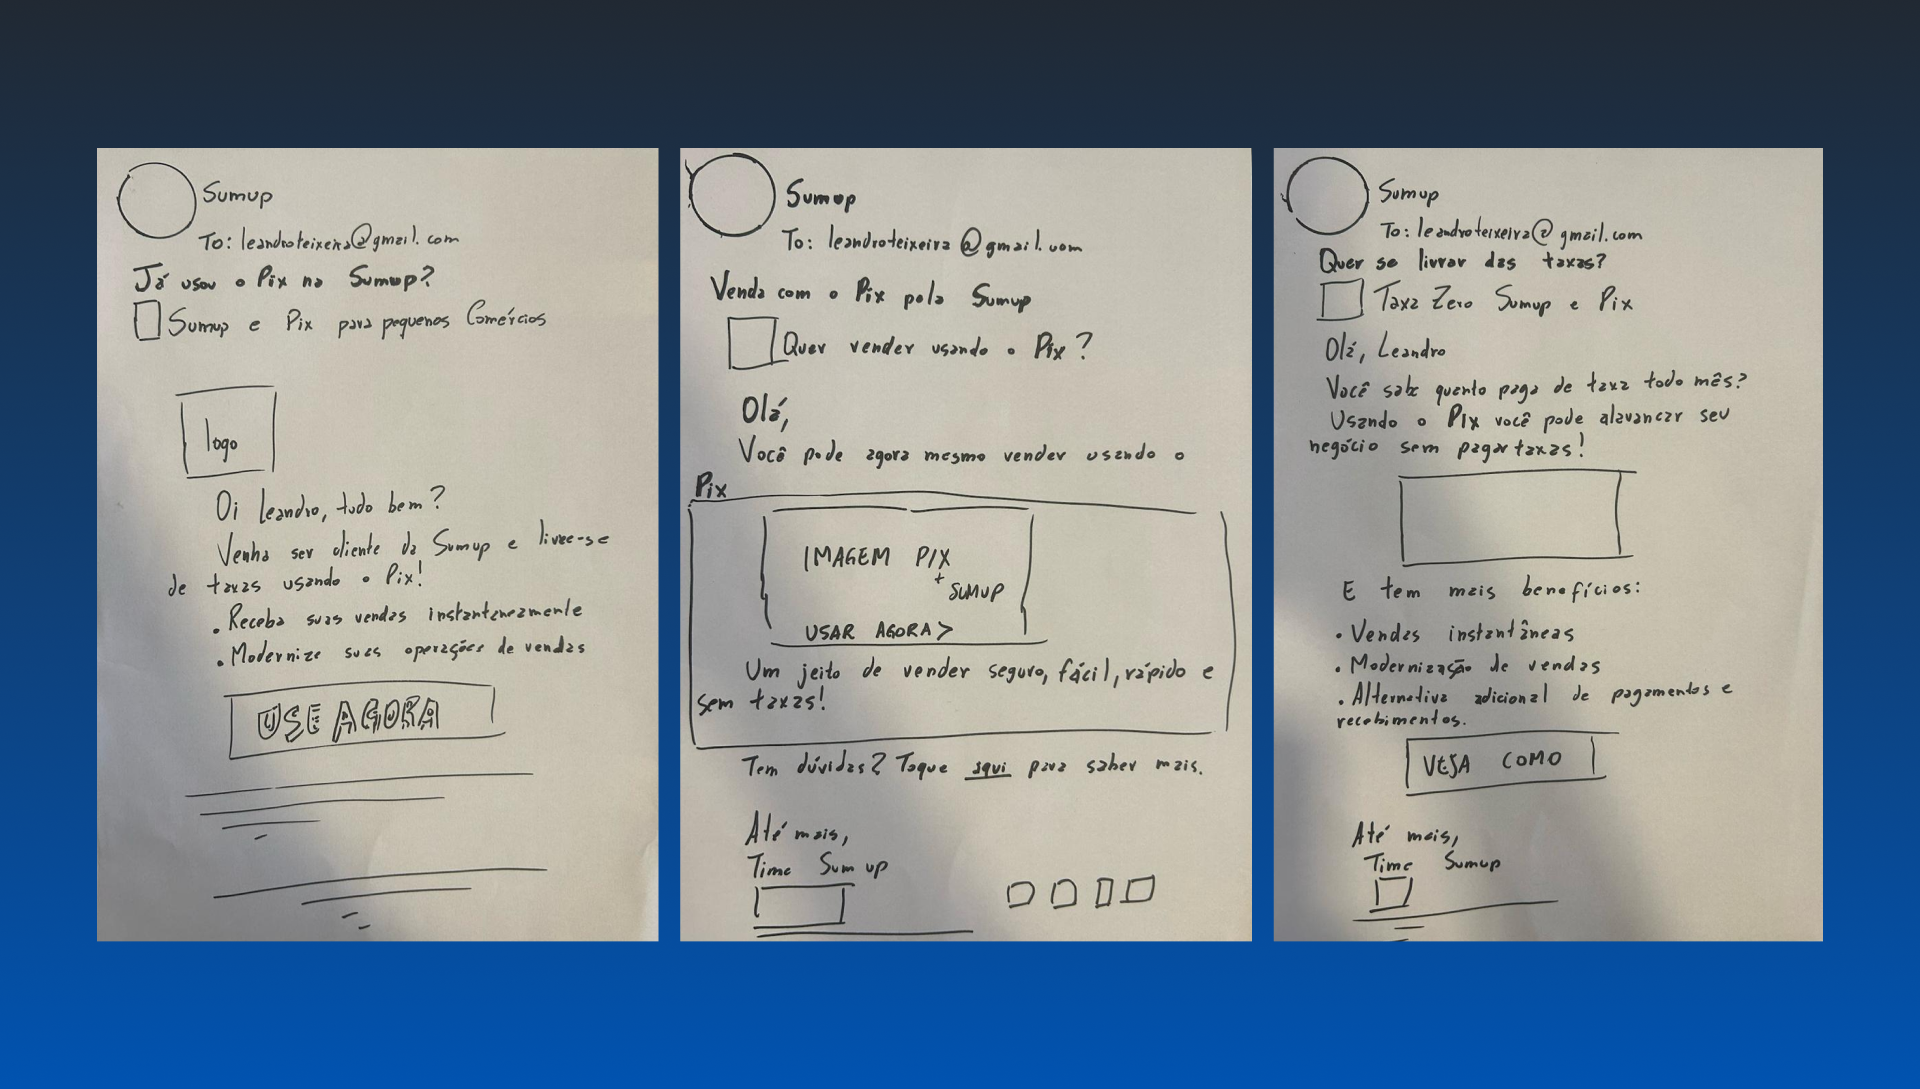 Sumup
To: leandroteixeira@gmail.com
Já usou o Pix na Sumup?
Sumup e Pix para pequenos Comércios
logo
Oi Leandro, tudo bem?
Venha ser cliente da Sumup e livre-se
de taxas usando o Pix!
. Receba suas vendas instantaneamente
. Modernize suas operações de vendas
USE AGORA
Sumup
To: leandroteixeira@gmail.com
Venda com o Pix pela Sumup
Quer vender usando o Pix?
Olá,
Você pode agora mesmo vender usando o
Pix
IMAGEM PIX
+
SUMUP
USAR AGORA>
Um jeito de vender seguro, fácil, rápido e
sem taxas!
Tem dúvidas? Toque aqui para saber mais.
Até mais,
Time Sumup
Sumup
To: leandroteixeira@gmail.com
Quer se livrar das taxas?
Taxa Zero Sumup e Pix
Olá, Leandro
Você sabe quanto paga de taxa todo mês?
Usando o Pix você pode alavancar seu
negócio sem pagar taxas!
E tem mais benefícios:
• Vendas instantâneas
• Modernização de vendas
• Alternativa adicional de pagamentos e
recebimentos.
VEJA COMO
Até mais,
Time Sumup